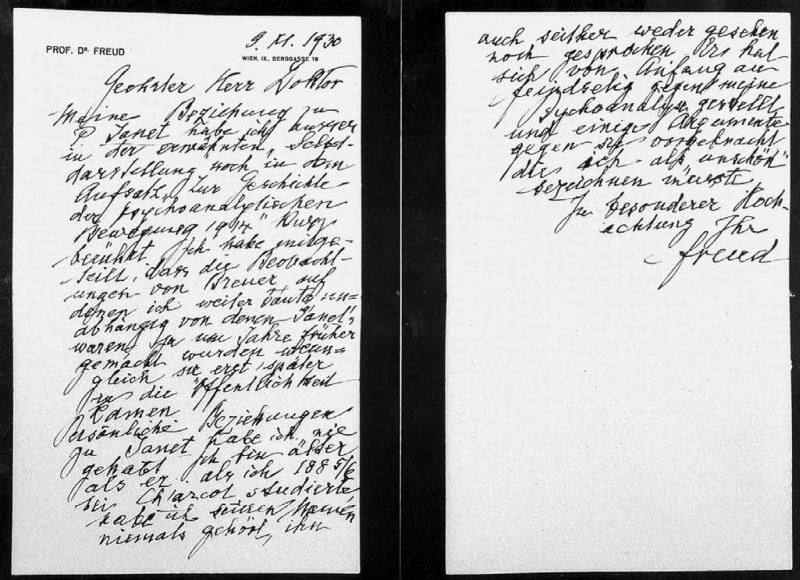 PROF. DR. FREUD
9. XI. 1930
WIEN, IX., BERGGASSE 19
Geehrter Herr Doktor
Meine Beziehung zu
P Janet habe ich ausser
in der erwähnten „Selbst-
darstellung" noch in dem
Aufsatz „Zur Geschichte
der psychoanalytischen
Bewegung 1914" kurz
berührt. Ich habe mitge-
teilt, dass die Beobacht-
ungen von Breuer auf
denen ich weiter baute un-
abhängig von denen Janet's
waren, ja um Jahre früher
gemacht wurden wenn-
gleich sie erst später
in die Öffentlichkeit
kamen
Persönliche Beziehungen
zu Janet habe ich nie
gehabt. Ich bin älter
als er. als ich 1885/6
bei Charcot studierte
habe ich seinen Namen
niemals gehört, ihn
auch seither weder gesehen
noch gesprochen. Er hat
sich von Anfang an
feindselig gegen meine
Psychoanalyse gestellt
und einige Argumente
gegen sie vorgebracht
die ich als „unschön"
bezeichnen musste
In besonderer Hoch-
achtung Ihr
Freud